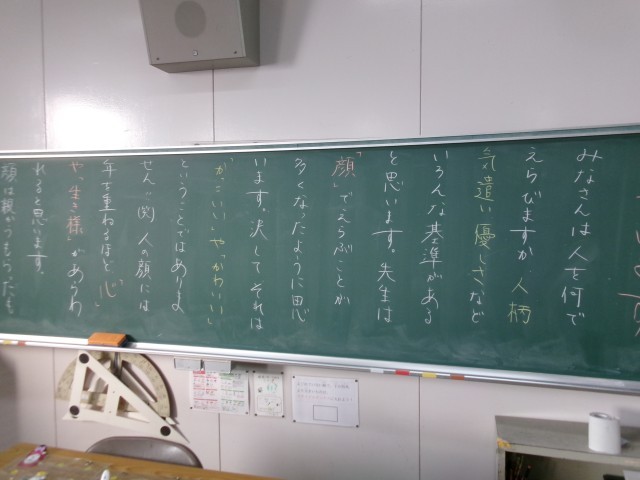 みなさんは人を何で
えらびますか 人柄
気遣い優しさなど
いろんな基準がある
と思います。先生は
「顔」でえらぶことが
多くなったように思
います。決してそれは
「かっこいい」や「かわいい」
ということではありま
せん。人の顔には
年を重ねるほど「心」
や「生き様」があらわ
れると思います。
顔は親からもらったも